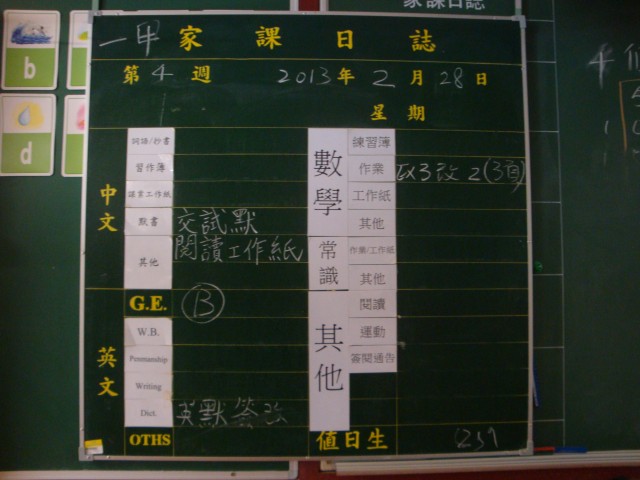 家課日誌
b
d
一甲 家課日誌
第4週 2013年2月28日
星期
中文
詞語/抄書
習作簿
課業工作紙
默書 交試默
其他 閱讀工作紙
英文
G.E. B
W.B.
Penmanship
Writing
Dict. 英默簽改
OTHS
數學
練習簿
作業 改2(3頁)
工作紙
其他
常識
作業/工作紙
其他
其他
閱讀
運動
簽閱通告
值日生